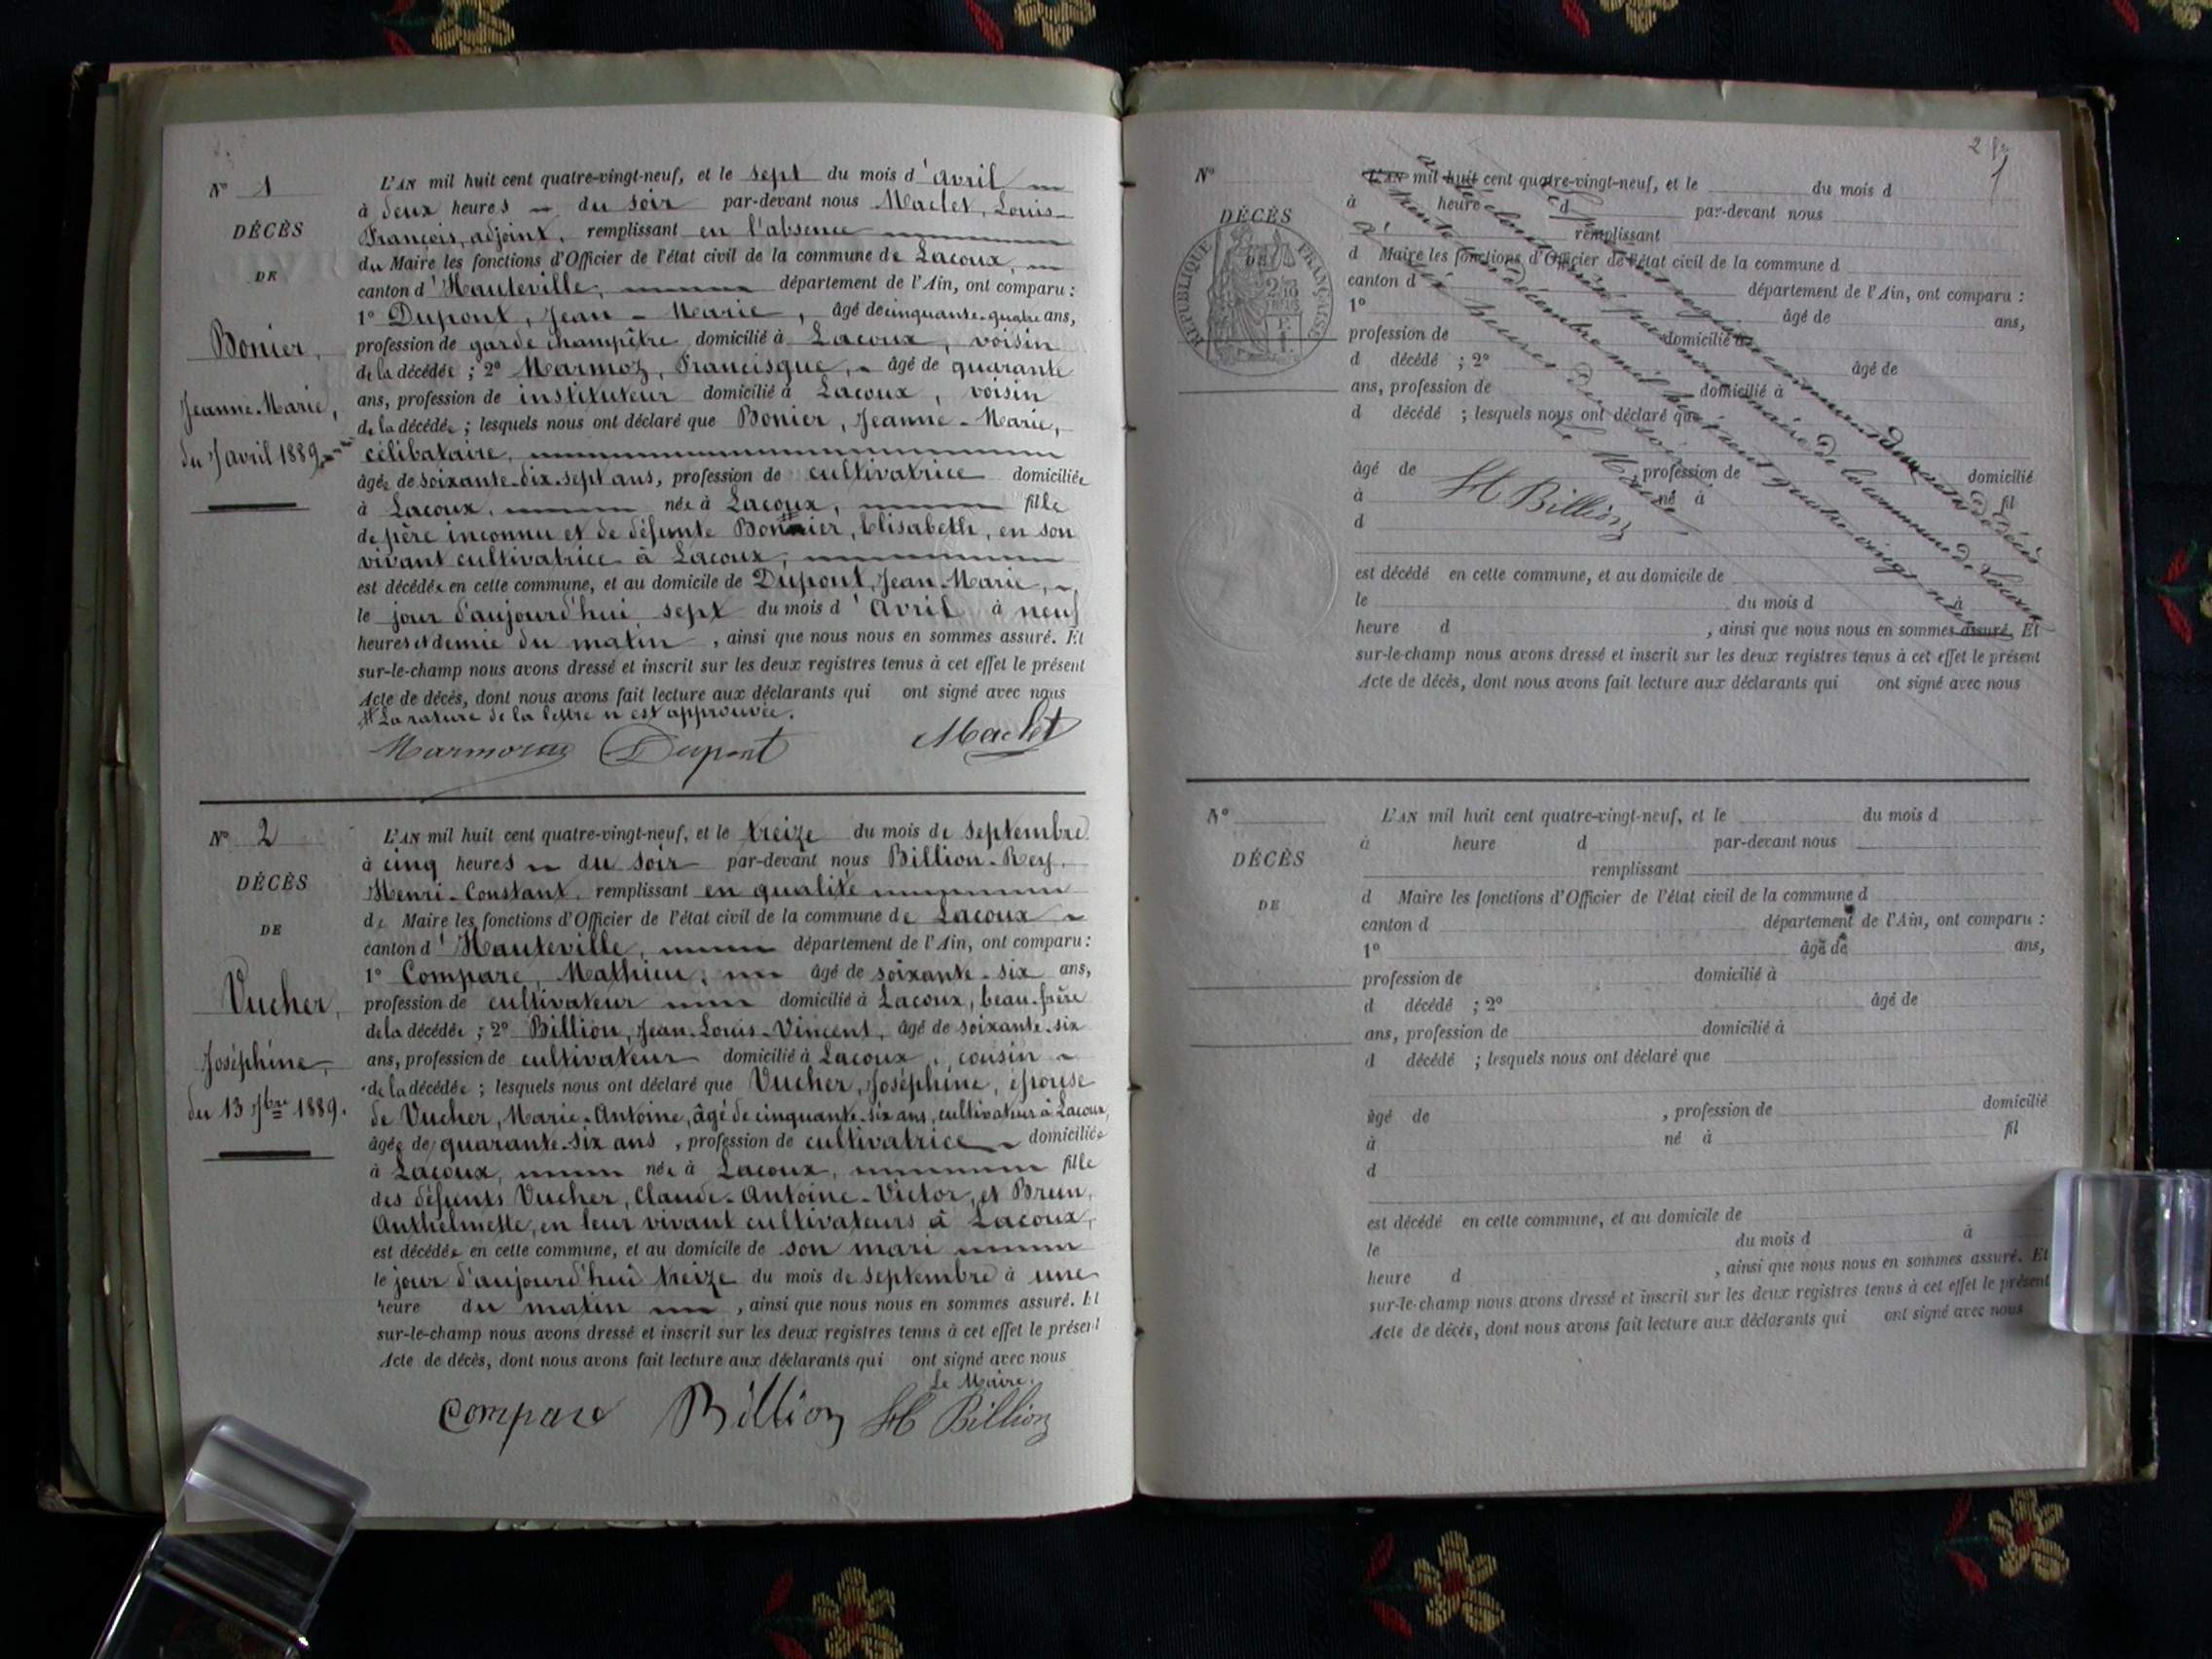 N° 1
DÉCÈS
DE
Bonier,
Jeanne-Marie,
du 7 avril 1889.
L'AN mil huit cent quatre-vingt-neuf, et le sept du mois d'avril
à deux heures du soir par-devant nous Maclet, Louis-
François, adjoint, remplissant en l'absence
du Maire les fonctions d'Officier de l'état civil de la commune de Lacoux,
canton d'Hauteville, département de l'Ain, ont comparu :
1° Dupont, Jean-Marie, âgé de cinquante-quatre ans,
profession de garde champêtre domicilié à Lacoux, voisin
de la décédée ; 2° Marmoz, Francisque, âgé de quarante
ans, profession de instituteur domicilié à Lacoux, voisin
de la décédée ; lesquels nous ont déclaré que Bonier, Jeanne-Marie,
célibataire,
âgée de soixante-dix-sept ans, profession de cultivatrice domiciliée
à Lacoux, née à Lacoux, fille
de père inconnu et de défunte Bonnier, Elisabeth, en son
vivant cultivatrice à Lacoux,
est décédée en cette commune, et au domicile de Dupont, Jean-Marie,
le jour d'aujourd'hui sept du mois d'Avril à neuf
heures et demie du matin, ainsi que nous nous en sommes assuré. Et
sur-le-champ nous avons dressé et inscrit sur les deux registres tenus à cet effet le présent
Acte de décès, dont nous avons fait lecture aux déclarants qui ont signé avec nous
# La rature de la lettre n est approuvée.
Dupont Maclet
N° 2
DÉCÈS
DE
Vucher,
Joséphine,
du 13 7bre 1889.
L'AN mil huit cent quatre-vingt-neuf, et le treize du mois de septembre
à cinq heures du soir par-devant nous Billion-Rey,
Henri-Constant, remplissant en qualité
de Maire les fonctions d'Officier de l'état civil de la commune de Lacoux
canton d'Hauteville, département de l'Ain, ont comparu :
1° Compare, Mathieu, âgé de soixante-six ans,
profession de cultivateur domicilié à Lacoux, beau-frère
de la décédée ; 2° Billion, Jean-Louis-Vincent, âgé de soixante-six
ans, profession de cultivateur domicilié à Lacoux, cousin
de la décédée ; lesquels nous ont déclaré que Vucher, Joséphine, épouse
de Vucher, Marie-Antoine, âgé de cinquante-six ans, cultivateur à Lacoux,
âgée de quarante-six ans, profession de cultivatrice domiciliée
à Lacoux, née à Lacoux, fille
des défunts Vucher, Claude-Antoine-Victor, et Brun,
Anthelmette, en leur vivant cultivateurs à Lacoux,
est décédée en cette commune, et au domicile de son mari
le jour d'aujourd'hui treize du mois de septembre à une
heure du matin, ainsi que nous nous en sommes assuré. Et
sur-le-champ nous avons dressé et inscrit sur les deux registres tenus à cet effet le présent
Acte de décès, dont nous avons fait lecture aux déclarants qui ont signé avec nous
Le Maire.
Compare Billion H Billion
N°
DÉCÈS
DE
RÉPUBLIQUE FRANÇAISE
L'AN mil huit cent quatre-vingt-neuf, et le du mois d
à heure d par-devant nous
remplissant
d Maire les fonctions d'Officier de l'état civil de la commune d
canton d département de l'Ain, ont comparu :
1° âgé de ans,
profession de domicilié à
d décédé ; 2° âgé de
ans, profession de domicilié à
d décédé ; lesquels nous ont déclaré que
âgé de , profession de domicilié
à né à fil
d
est décédé en cette commune, et au domicile de
le du mois d à
heure d , ainsi que nous nous en sommes assuré. Et
sur-le-champ nous avons dressé et inscrit sur les deux registres tenus à cet effet le présent
Acte de décès, dont nous avons fait lecture aux déclarants qui ont signé avec nous
par nous maire de la commune de Lacoux
décembre mil huit cent quatre-vingt-neuf
à six heures du soir
Le Maire
H Billion
N°
DÉCÈS
DE
L'AN mil huit cent quatre-vingt-neuf, et le du mois d
à heure d par-devant nous
remplissant
d Maire les fonctions d'Officier de l'état civil de la commune d
canton d département de l'Ain, ont comparu :
1° âgé de ans,
profession de domicilié à
d décédé ; 2° âgé de
ans, profession de domicilié à
d décédé ; lesquels nous ont déclaré que
âgé de , profession de domicilié
à né à fil
d
est décédé en cette commune, et au domicile de
le du mois d à
heure d , ainsi que nous nous en sommes assuré. Et
sur-le-champ nous avons dressé et inscrit sur les deux registres tenus à cet effet le présent
Acte de décès, dont nous avons fait lecture aux déclarants qui ont signé avec nous